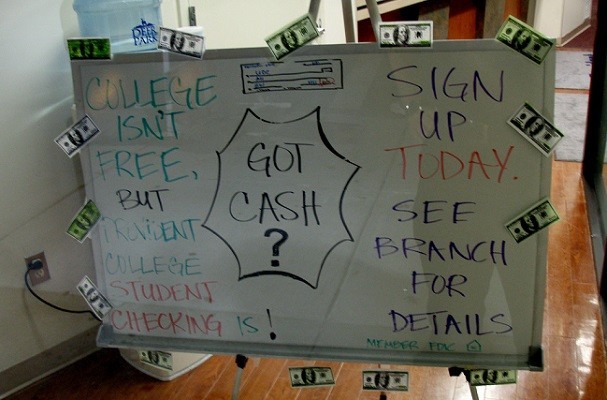 COLLEGE
ISN'T
FREE,
BUT
PROVIDENT
COLLEGE
STUDENT
CHECKING IS!
GOT
CASH
?
SIGN
UP
TODAY.
SEE
BRANCH
FOR
DETAILS
MEMBER FDIC